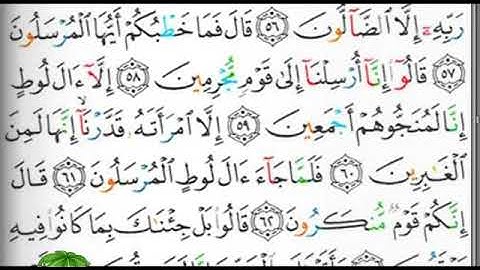 رَبِّهِۦٓ إِلَّا ٱلضَّآلُّونَ ٥٦ قَالَ فَمَا خَطْبُكُمْ أَيُّهَا ٱلْمُرْسَلُونَ
٥٧ قَالُوٓا۟ إِنَّآ أُرْسِلْنَآ إِلَىٰ قَوْمٍ مُّجْرِمِينَ ٥٨ إِلَّآ ءَالَ لُوطٍ
إِنَّا لَمُنَجُّوهُمْ أَجْمَعِينَ ٥٩ إِلَّا ٱمْرَأَتَهُۥ قَدَّرْنَآ إِنَّهَا لَمِنَ
ٱلْغَـٰبِرِينَ ٦٠ فَلَمَّا جَآءَ ءَالَ لُوطٍ ٱلْمُرْسَلُونَ ٦١ قَالَ
إِنَّكُمْ قَوْمٌ مُّنكَرُونَ ٦٢ قَالُوا۟ بَلْ جِئْنَـٰكَ بِمَا كَانُوا۟ فِيهِ